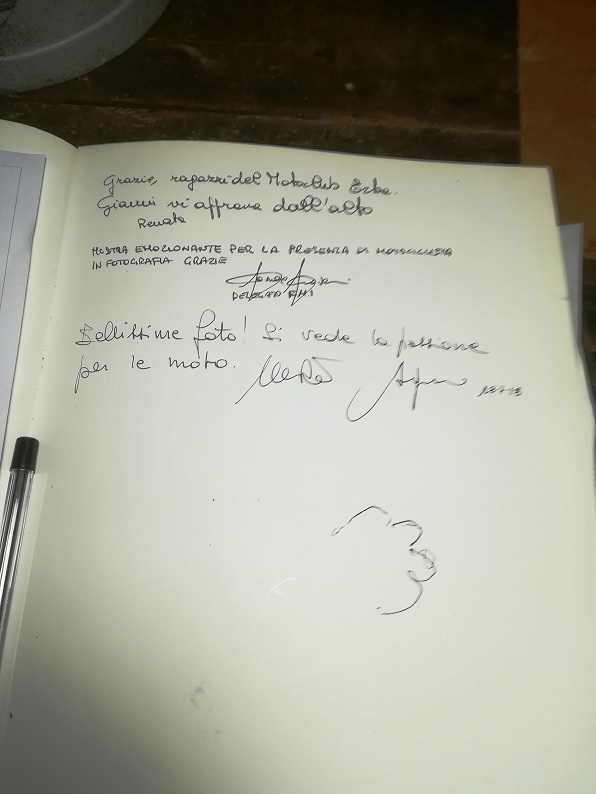 Grazie, ragazzi del Motoclub Erba.
Gianni vi approva dall'alto
Renata
MOSTRA EMOZIONANTE PER LA PRESENZA DI
IN FOTOGRAFIA GRAZIE
DELEGATO FMI
Bellissime foto! Si vede la passione
per le moto.